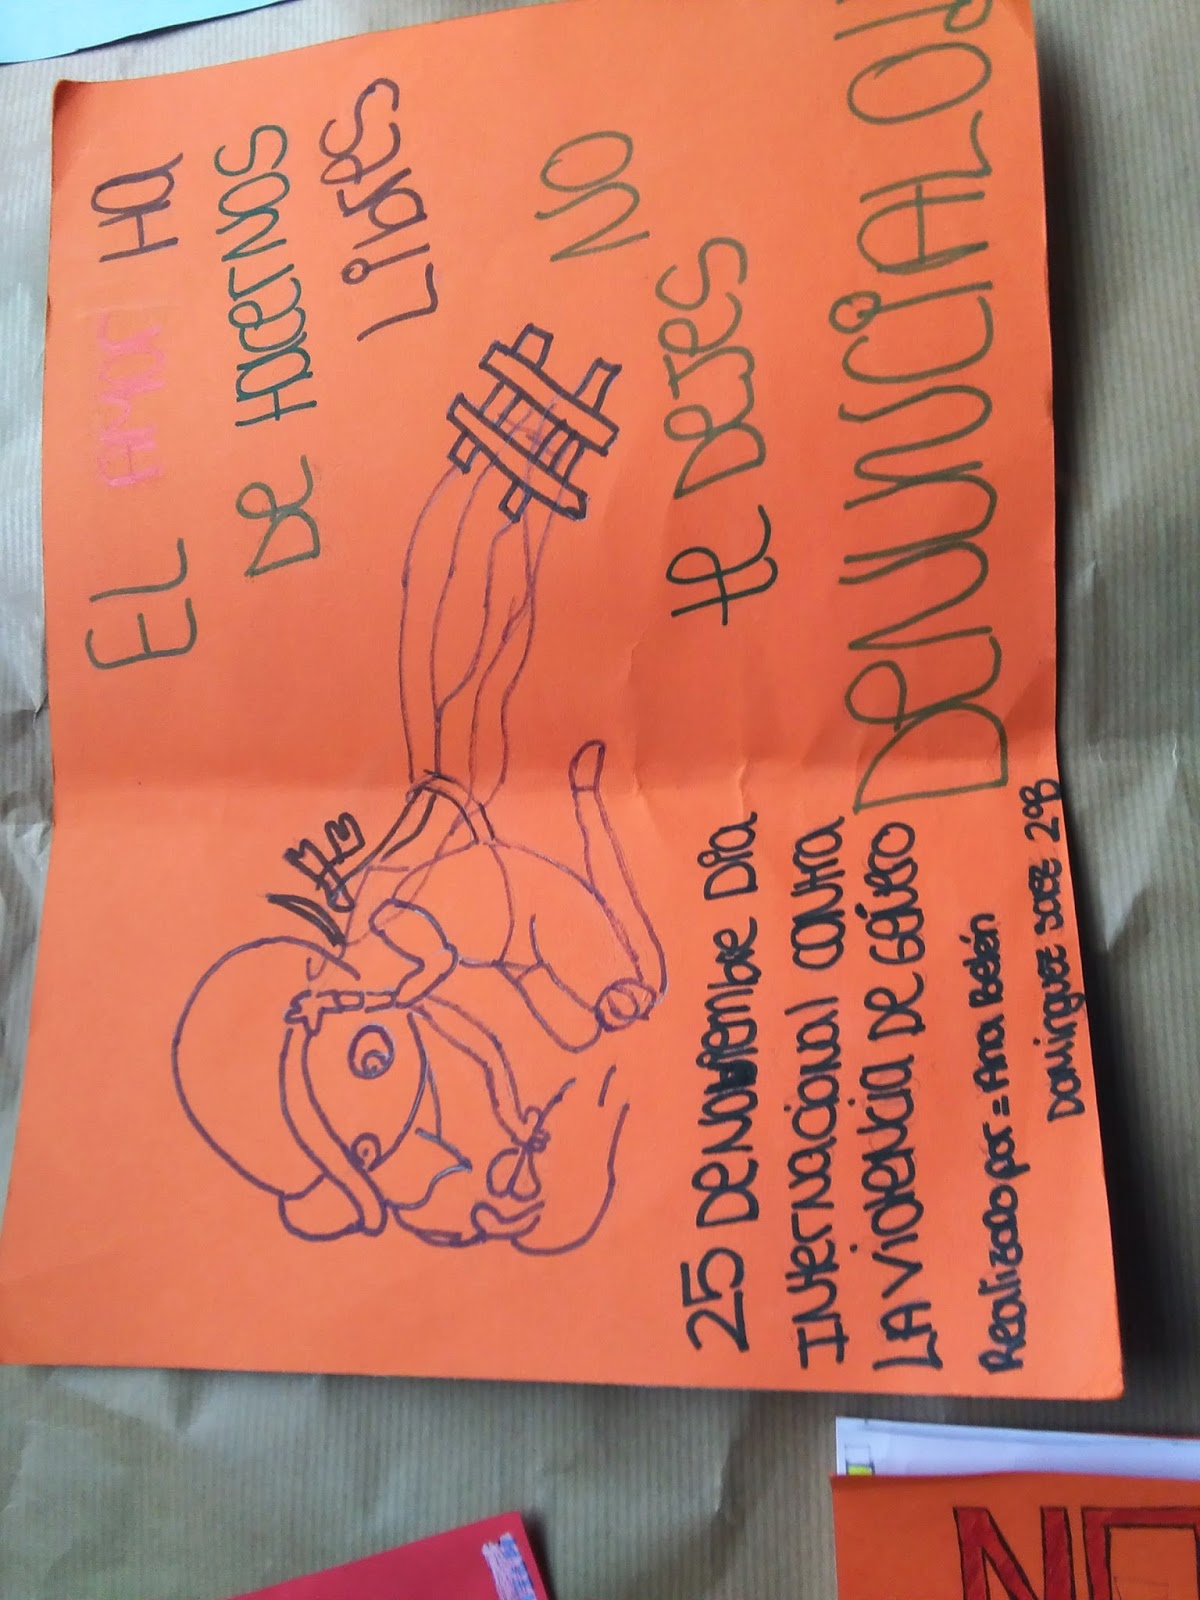 EL AMOR HA
DE HACERNOS
LIBRES
NO
TE DEJES
DENUNCIALO
25 DE NOVIEMBRE DIA
INTERNACIONAL CONTRA
LA VIOLENCIA DE GÉNERO
Realizado por = Ana Belén
DOMINGUEZ 2ºB
NO